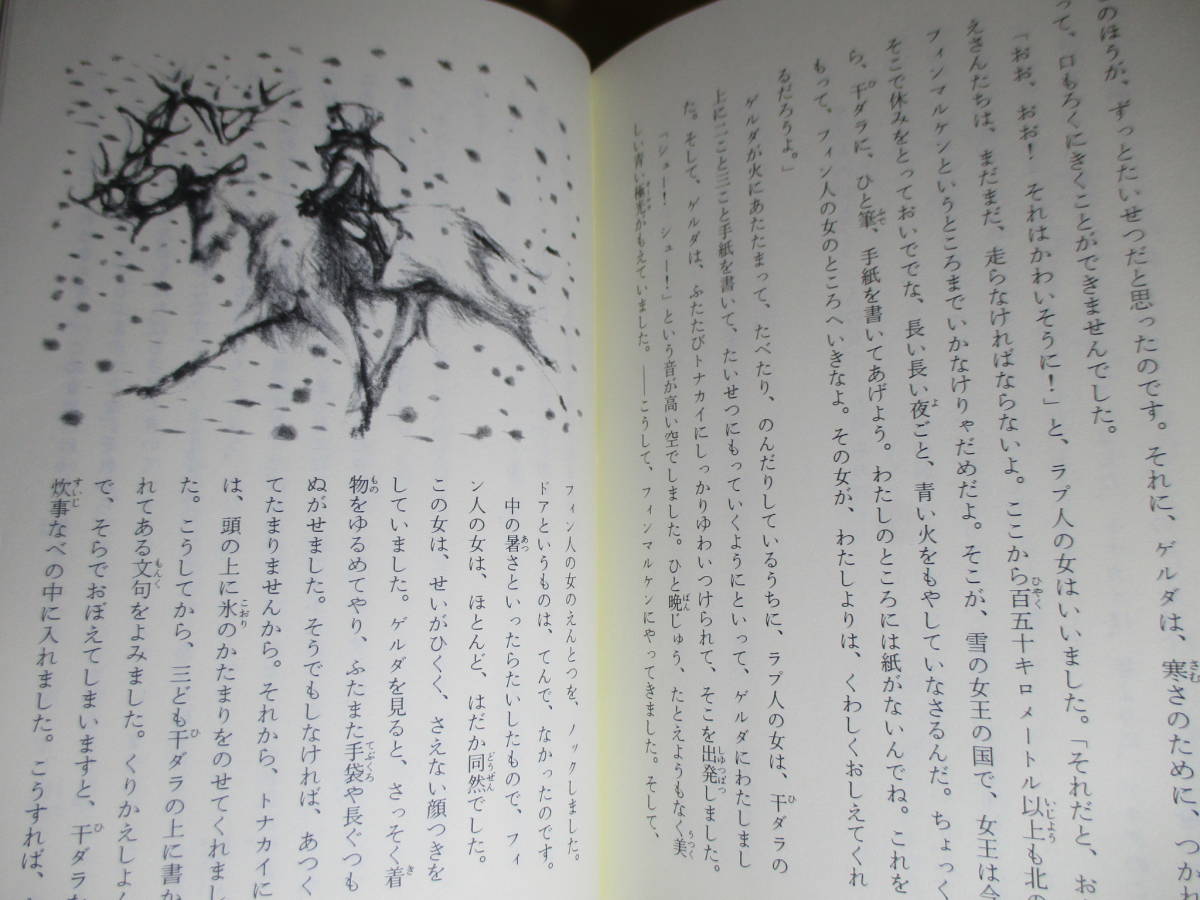 のほうが、ずっとたいせつだと思ったのです。それに、ゲルダは、寒さのために、つかれ
って、口もろくにきくことができませんでした。
「おお、おお！　それはかわいそうに！」と、ラプ人の女はいいました。「それだと、お
えさんたちは、まだまだ、走らなければならないよ。ここから百五十キロメートル以上も北の
フィンマルケンというところまでいかなけりゃだめだよ。そこが、雪の女王の国で、女王は今
そこで休みをとっておいででな、長い長い夜ごと、青い火をもやしていなさるんだ。ちょっく
ら、干ダラに、ひと筆、手紙を書いてあげよう。わたしのところには紙がないんでね。これを
もって、フィン人の女のところへいきなよ。その女が、わたしよりは、くわしくおしえてくれ
るだろうよ。」
ゲルダが火にあたたまって、たべたり、のんだりしているうちに、ラプ人の女は、干ダラの
上に二こと三こと手紙を書いて、たいせつにもっていくようにといって、ゲルダにわたしまし
た。そして、ゲルダは、ふたたびトナカイにしっかりゆわいつけられて、そこを出発しました。
「シュー！　シュー！」という音が高い空でしました。ひと晩じゅう、たとえようもなく美
しい青い極光がもえていました。――こうして、フィンマルケンにやってきました。そして、
フィン人の女のえんとつを、ノックしました。
ドアというものは、てんで、なかったのです。
中の暑さといったらたいしたもので、フィ
ン人の女は、ほとんど、はだか同然でした。
この女は、せいがひくく、さえない顔つきを
していました。ゲルダを見ると、さっそく着
物をゆるめてやり、ふたまた手袋や長ぐつも
ぬがせました。そうでもしなければ、あつく
てたまりませんから。それから、トナカイに
は、頭の上に氷のかたまりをのせてくれまし
た。こうしてから、三ども干ダラの上に書か
れてある文句をよみました。くりかえしよん
で、そらでおぼえてしまいますと、干ダラ
炊事なべの中に入れました。こうすれば、